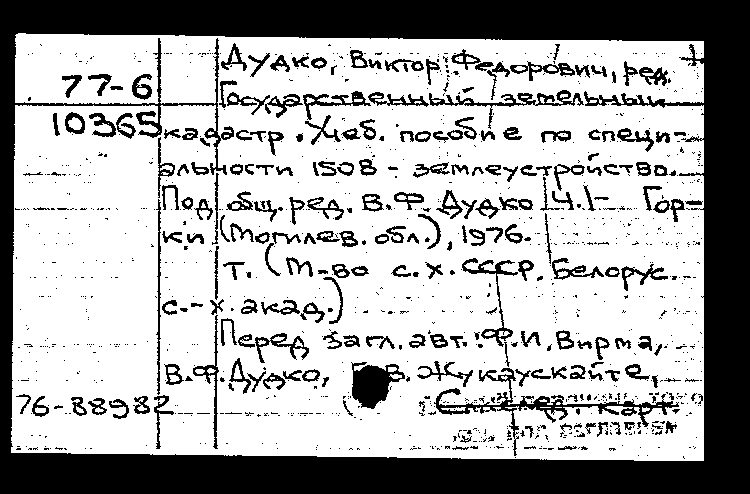 Дудко, Виктор Федорович, ред.
77-6
Государственный земельный
10365
кадастр. Учеб. пособие по специ-
альности 1508 - землеустройство.
Под общ. ред. В.Ф. Дудко Ч.1- Гор-
ки (Могилев. обл.), 1976.
т. (М-во с.х. СССР. Белорус.
с.-х. акад.)
Перед загл. авт.: Ф.И. Вирма,
В.Ф. Дудко, В. Жукаускайте,
76-88982
След. карт.